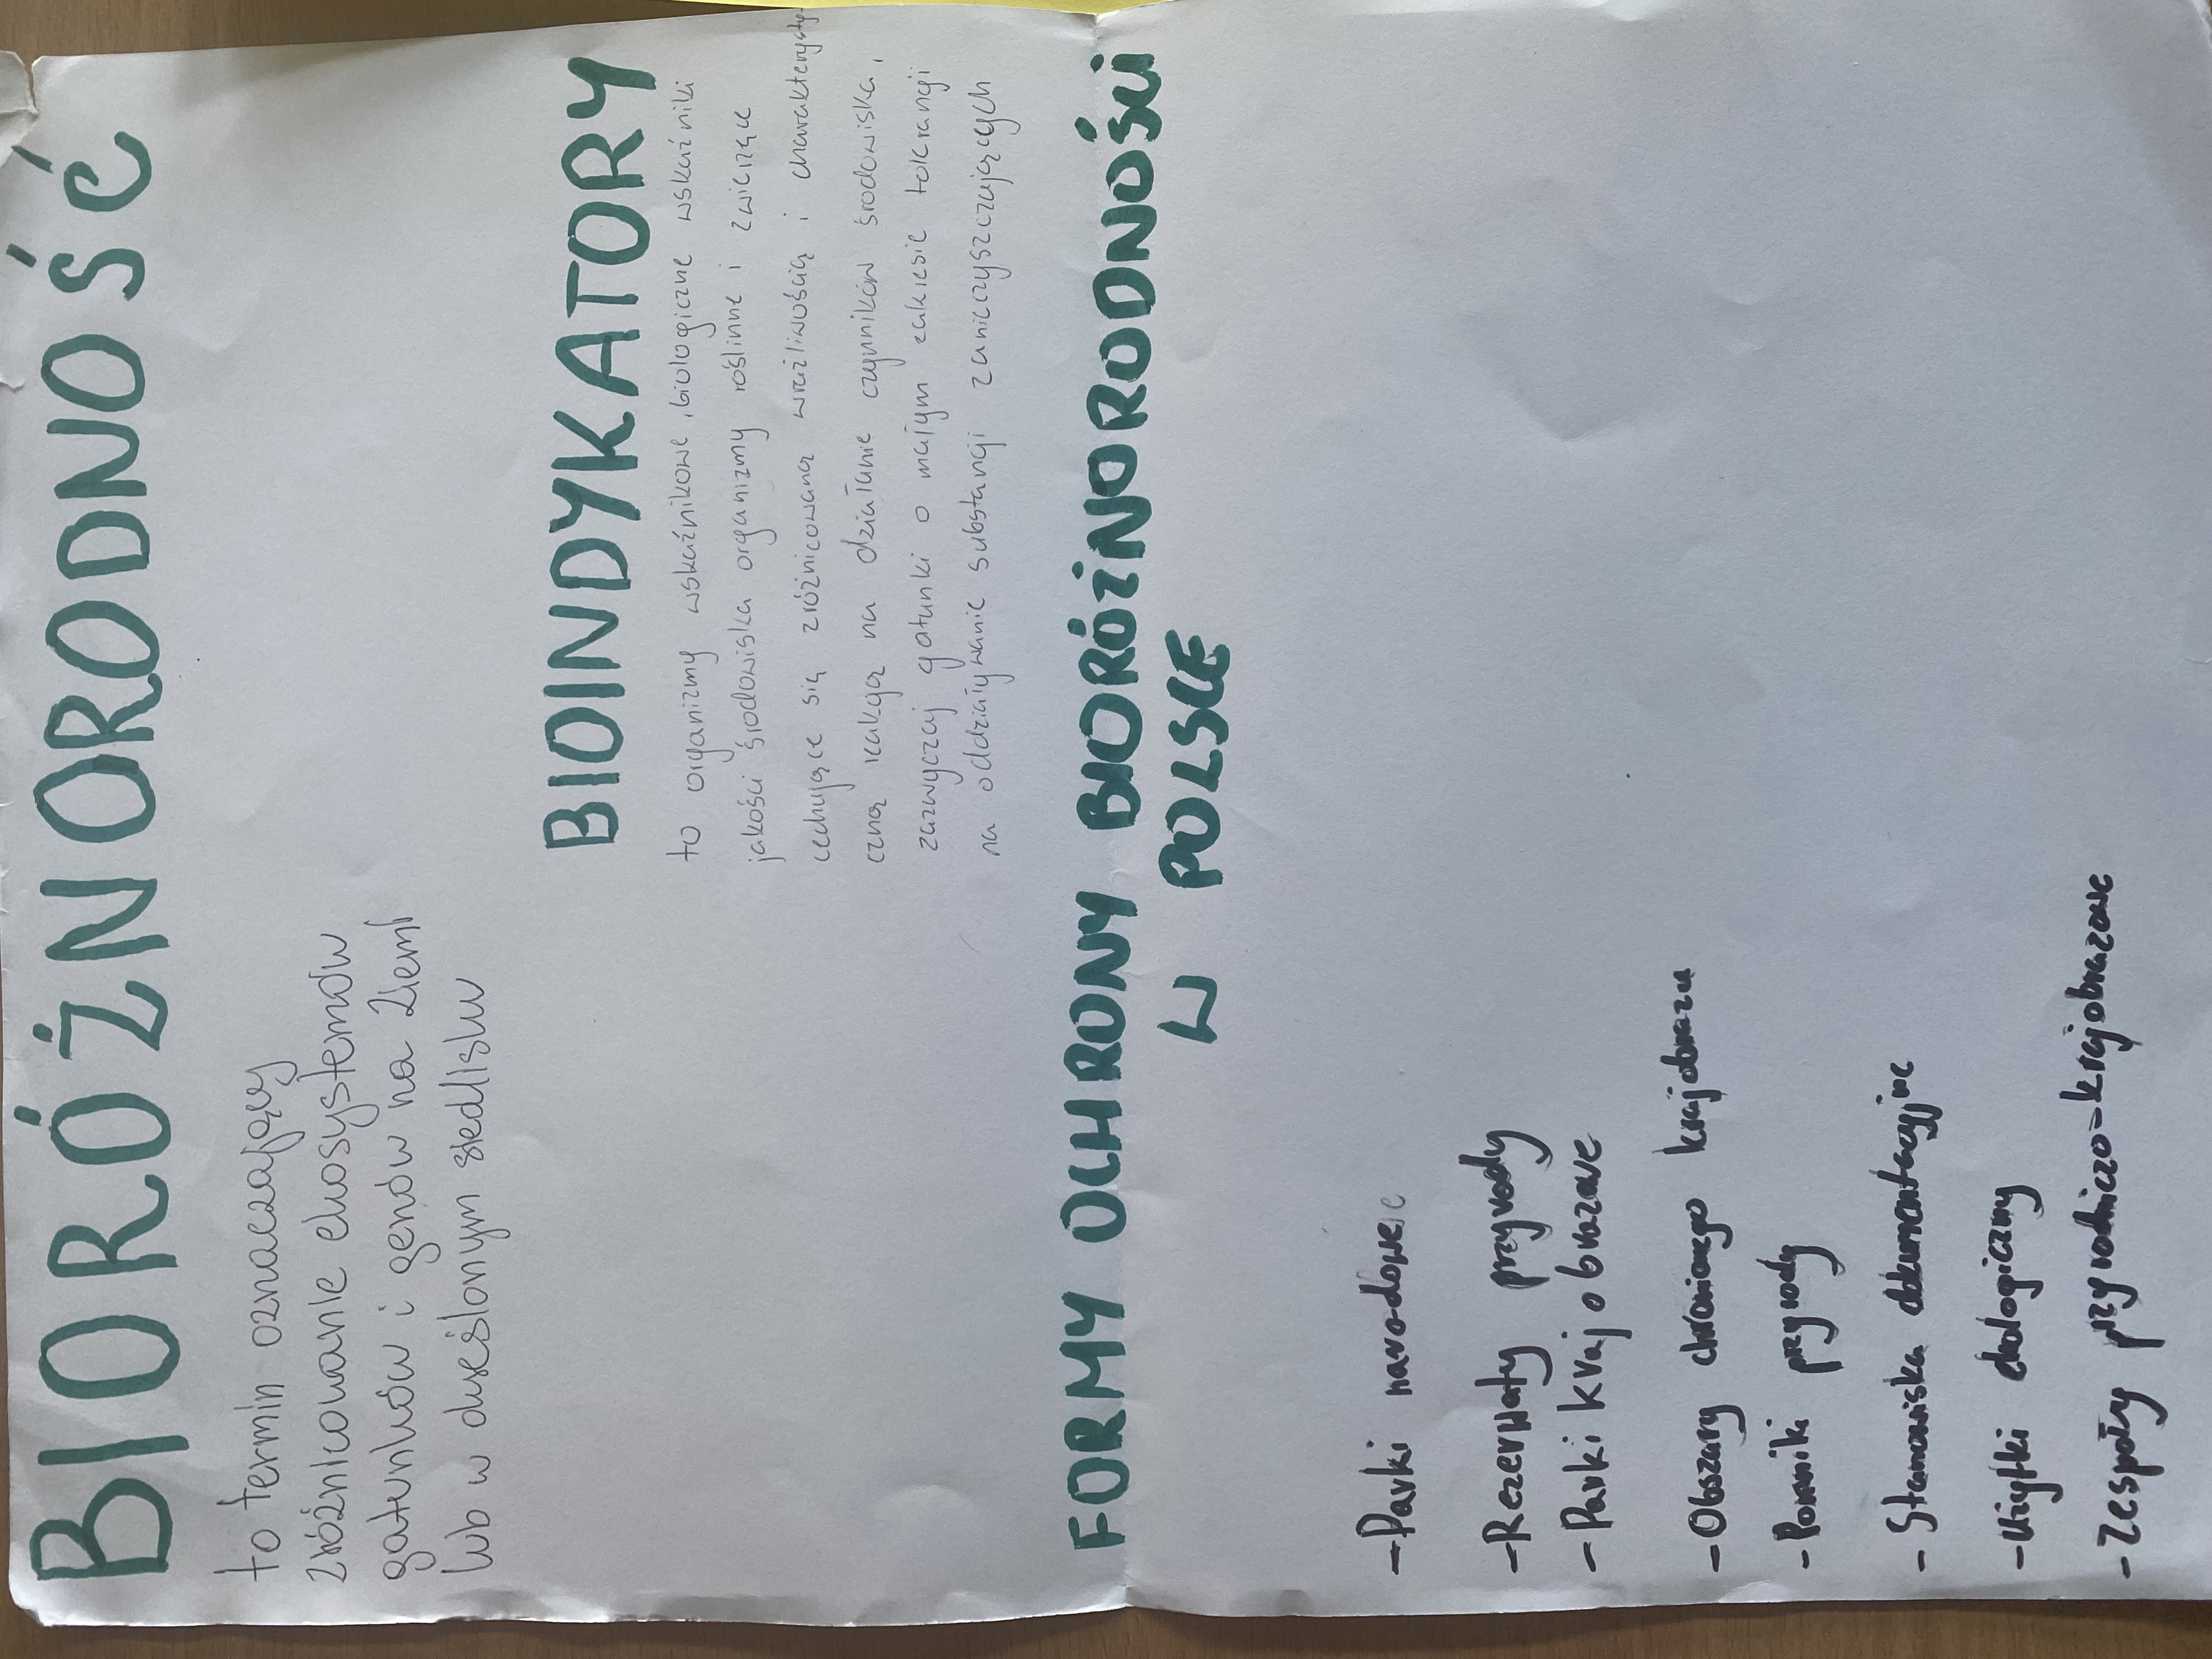 BIORÓŻNORODNOŚĆ
to termin oznaczający
zróżnicowanie ekosystemów
gatunków i genów na Ziemi
lub w określonym siedlisku
BIOINDYKATORY
to organizmy wskaźnikowe, biologiczne wskaźniki
jakości środowiska organizmy roślinne i zwierzęce
cechujące się zróżnicowaną wrażliwością i charakterysty-
czną reakcją na działanie czynników środowiska,
zazwyczaj gatunki o małym zakresie tolerancji
na oddziaływanie substancji zanieczyszczających
FORMY OCHRONY BIORÓŻNORODNOŚCI
W POLSCE
- Parki narodowe
- Rezerwaty przyrody
- Parki krajobrazowe
- Obszary chronionego krajobrazu
- Pomniki przyrody
- Stanowiska dokumentacyjne
- Użytki ekologiczny
- Zespoły przyrodniczo-krajobrazowe